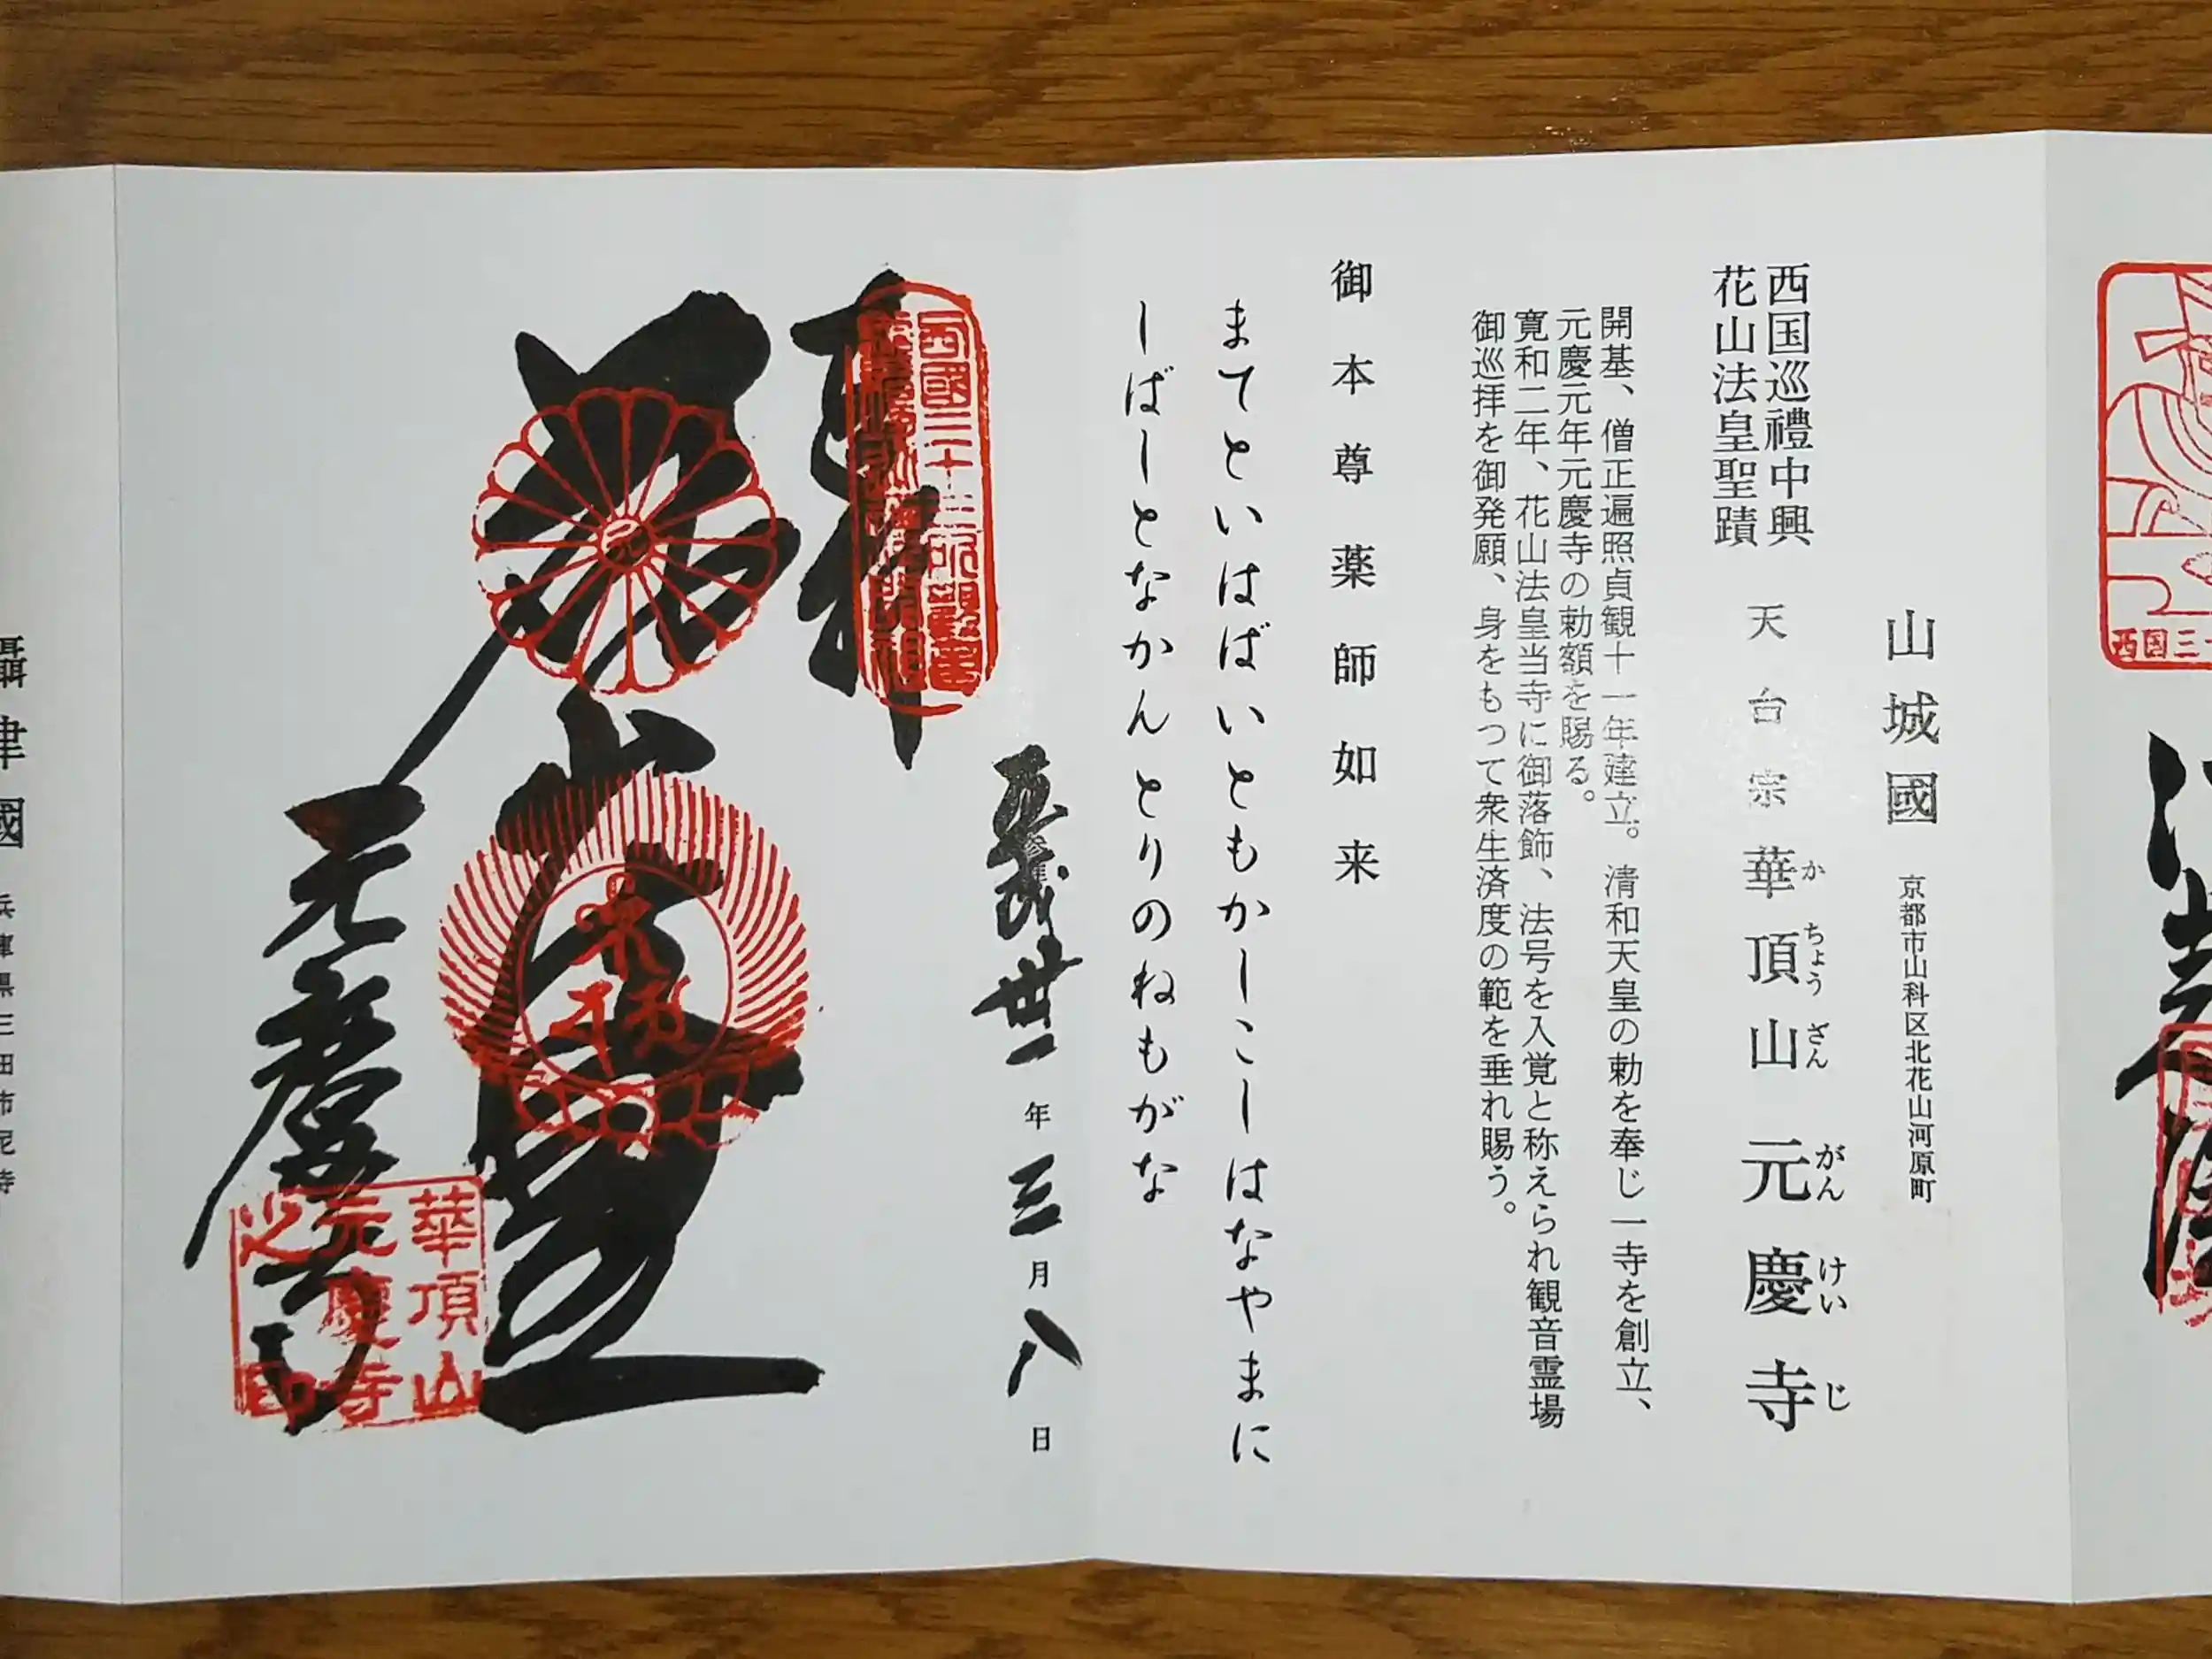 山城國 京都市山科区北花山河原町
西国巡禮中興
花山法皇聖蹟
天台宗 華頂山 元慶寺
か ちょう ざん がん けい じ
開基、僧正遍照貞観十一年建立。清和天皇の勅を奉じ一寺を創立、
元慶元年元慶寺の勅額を賜る。
寛和二年、花山法皇当寺に御落飾、法号を入覚と称えられ観音霊場
御巡拝を御発願、身をもつて衆生済度の範を垂れ賜う。
御本尊薬師如来
まてといはばいともかしこしはなやまに
しばしとなかんとりのねもがな
年三月八日
奉拝
西國三十三所觀音
元慶寺
華頂山
元慶寺
之印
攝津國 兵庫県三田市尼寺
西国三十